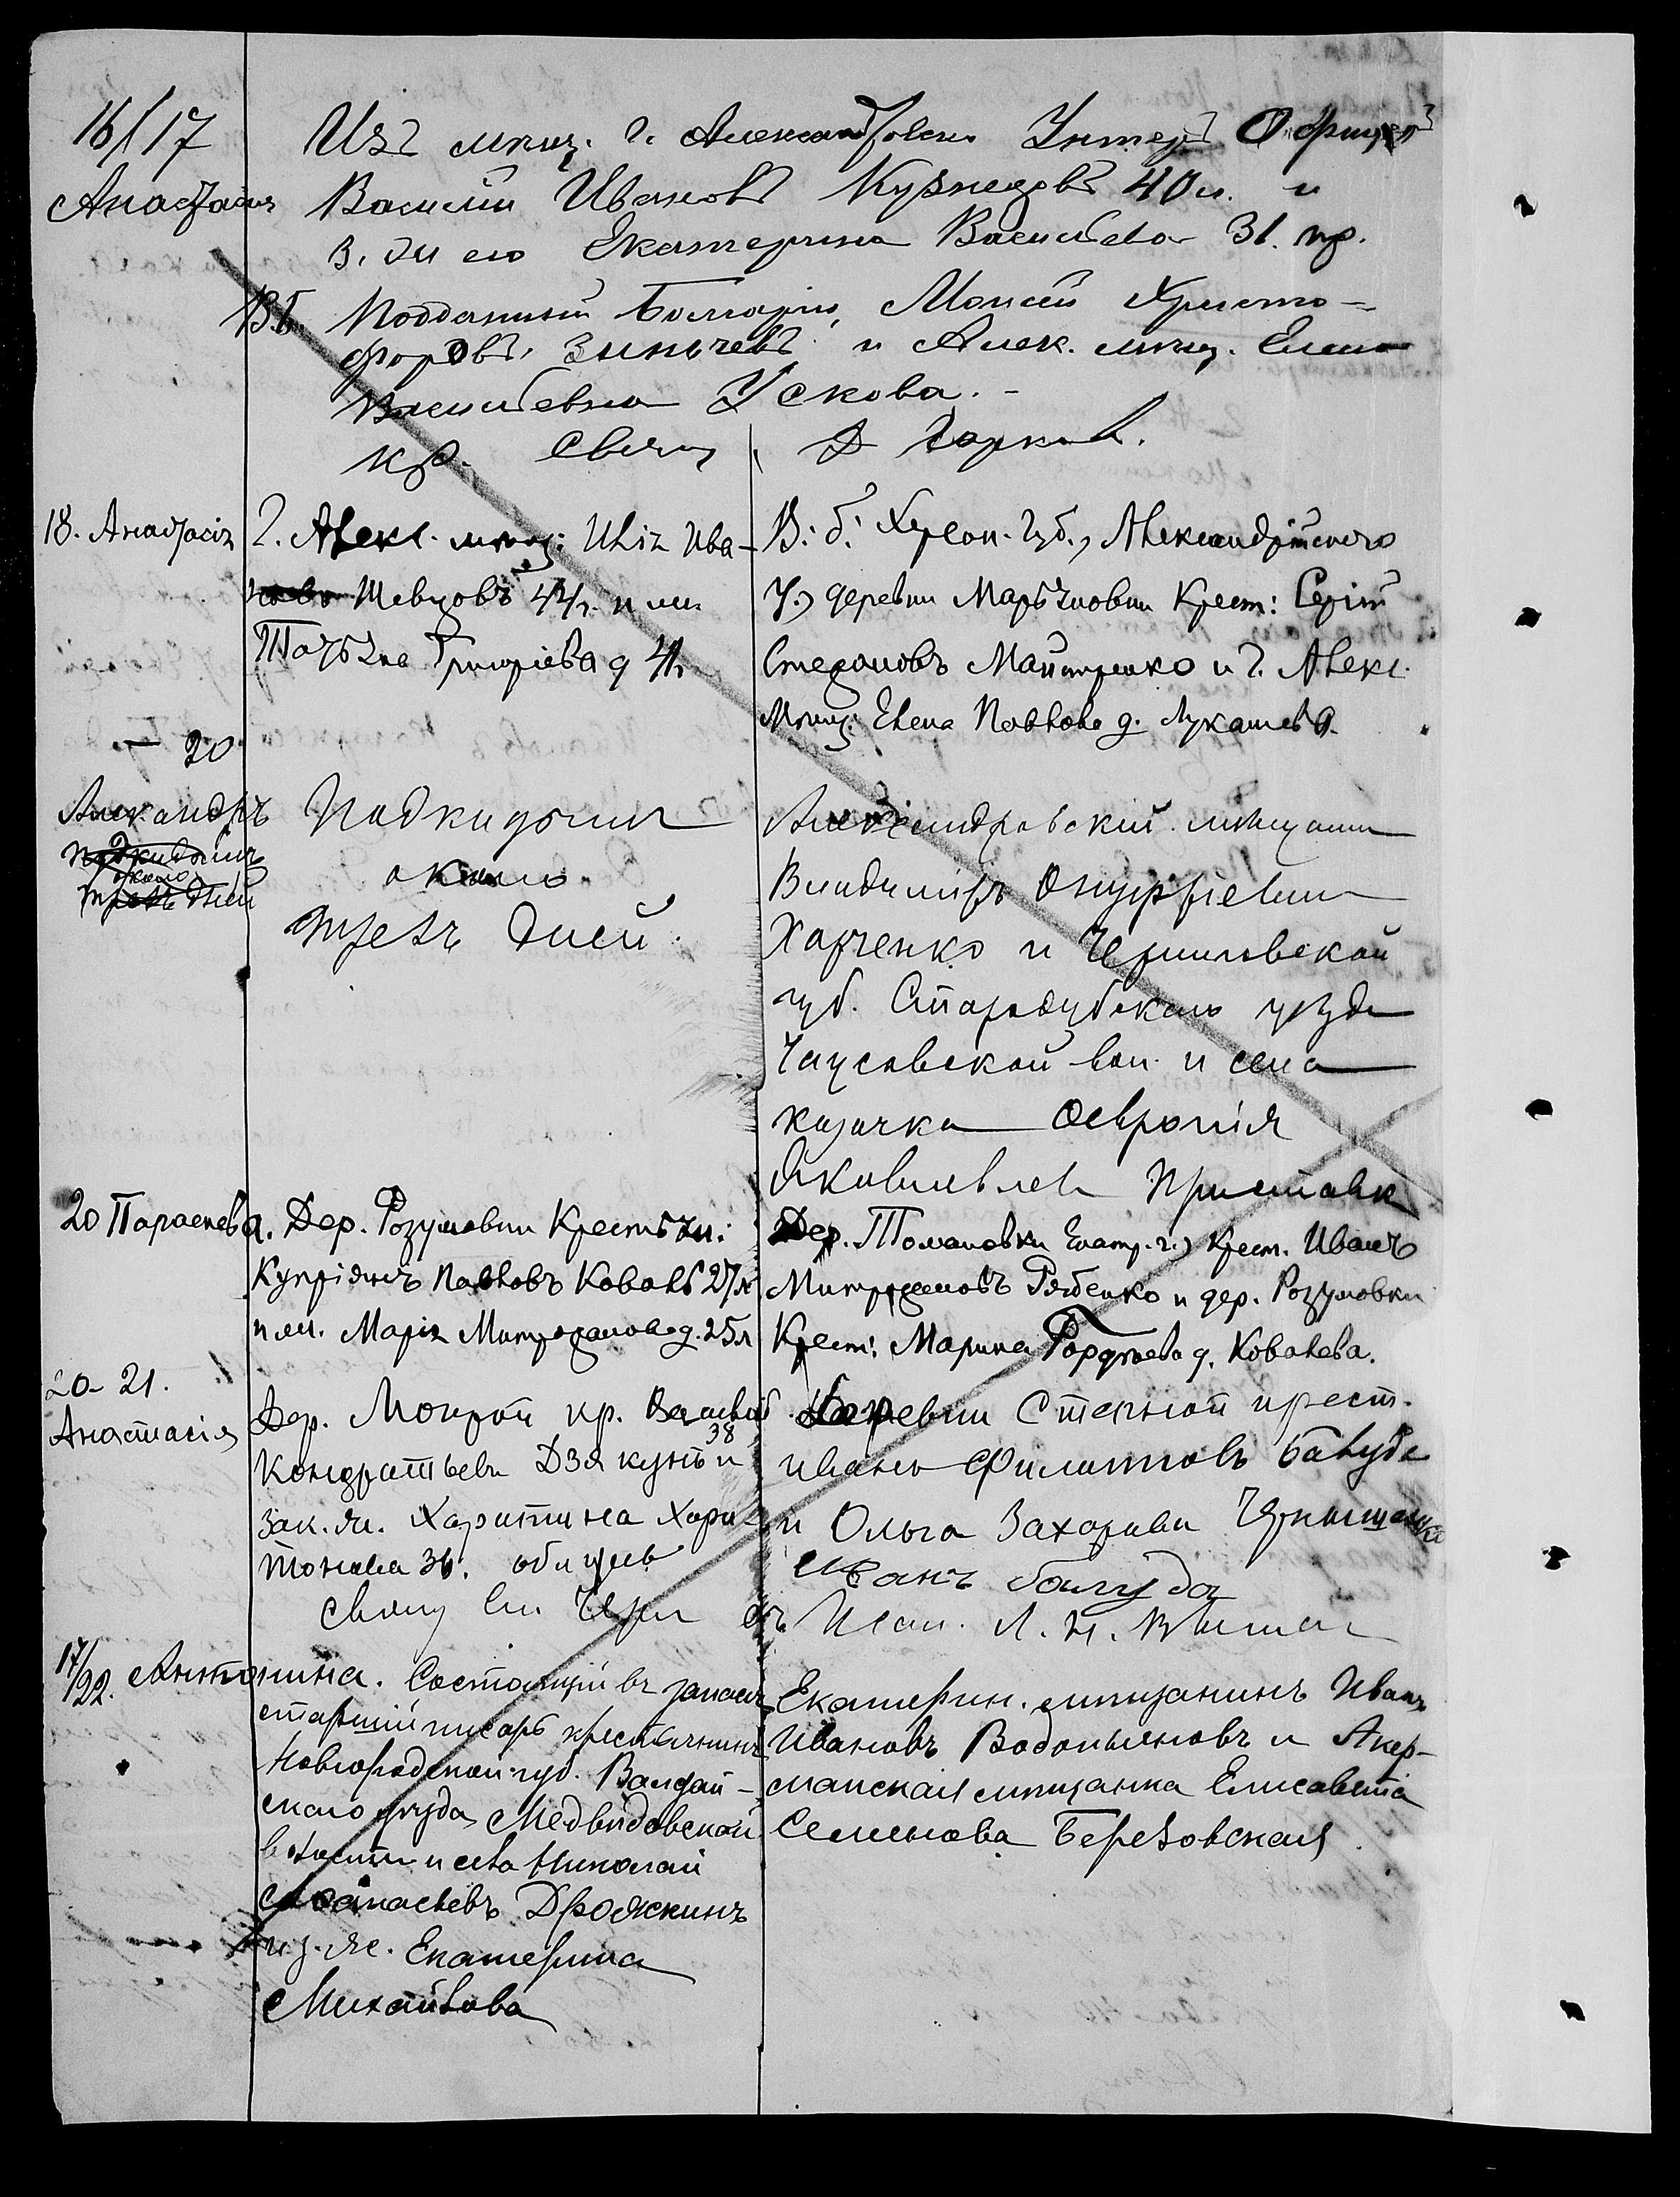 16/17
Анастасія
Изъ мѣщ. г. Александровска Унтеръ Офицеръ
Василій Ивановъ Кузнецовъ 40 л. и
з. ж. его Екатерина Васильева 31. пр.
В.б. Подданный Болгаріи, Моисей Христо-
форовъ, Зинчевъ и Алек. мѣщ. Елена
Васильевна Ускова. -
кр. Свящ.
18. Анастасія
Г. Алекс. мѣщ: Илія Ива-
новъ Шевцовъ 44 г. и ж.
Татьяна Григоріева д 41
В. б. Херсон. Губ., Александрійскаго
у., деревни Марьяновки Крест: Сергій
Стефановъ Майстренко и г. Алекс.
Мѣщ: Елена Павлова д. Лукашева.
— 20
Александръ
подкидышъ
около
трехъ дней
Подкидышъ
около
трехъ дней.
Александровскій мѣщанинъ
Владиміръ Онуфріевичъ
Харченко и Черниговской
губ. Стародубскаго уѣзда
вол. и села
казачка Февронія
Яковлевна
20 Параскева.
Дер. Розумовки Крестьян:
Купріянъ Павловъ Коваль 27 л
и ж. Марія Митрофанова д. 25 л
Дер. Томаковки Екатр. г., Крест. Иванъ
Митрофановъ Рябенко и дер. Розумовки
Крест: Марина Гордѣева д. Ковалева.
20-21.
Анастасія
Дер. Мокрой кр. Василій
38
Кондратьевъ Дзякунъ и
зак. ж. Харитина Хари-
тонова 36. обицев
Деревни Степной крест.
Иванъ Филиповъ Балуда
и Ольга Захарова
Иванъ балуда
Псал.
17/22. Антонина.
Состоящій въ запасѣ
старшій писарь крестьянинъ
Новгородской губ. Валдай-
скаго уѣзда Медвѣдовской
волости и села Николай
Афанасьевъ Дрожжинъ
и з. ж. Екатерина
Михайлова
Екатерин. мѣщанинъ Иванъ
Ивановъ Водопьяновъ и Акер-
манская мѣщанка Елисавета
Семенова Березовская